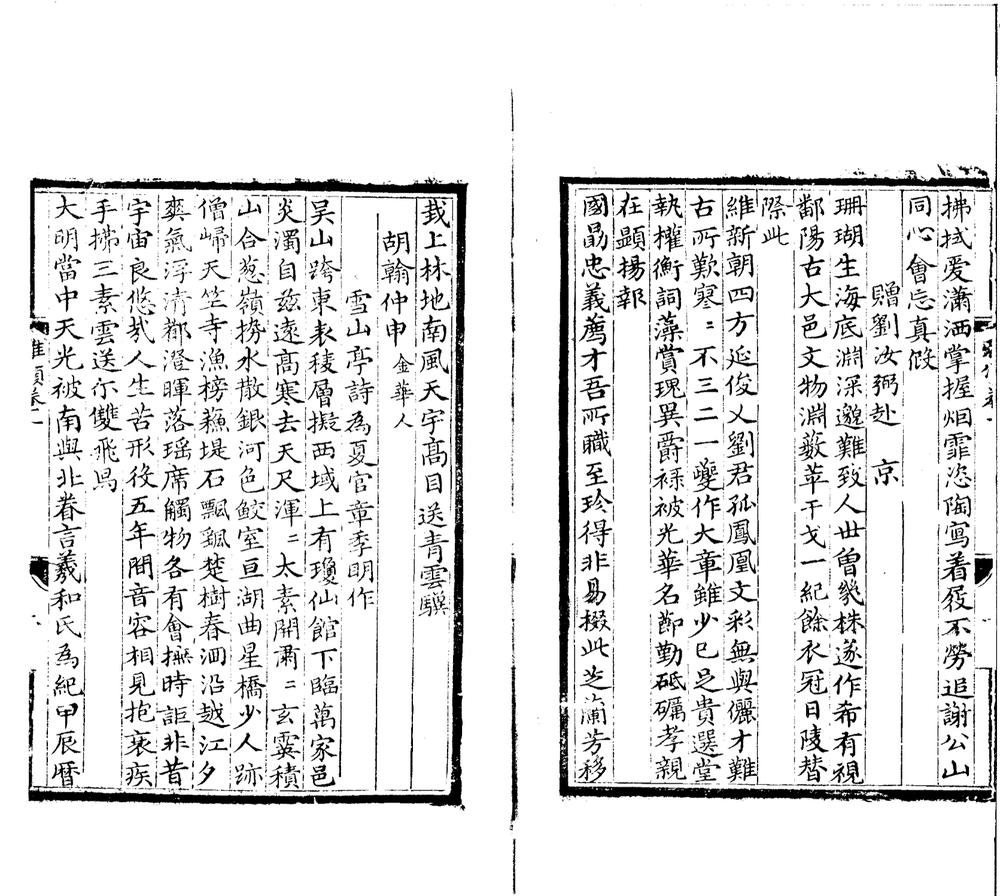 拂拭爱瀟洒掌握烟霏恣陶寫着屐不勞追謝公山
同心會忘真假
贈劉汝弼赴　京
珊瑚生海底淵深邈難致人世曾幾株遂作希有視
鄱陽古大邑文物淵藪萃干戈一紀餘衣冠日陵替
際此
維新朝四方延俊乂劉君孤鳳凰文彩無與儷才難
古所歎寒〻不三二一夔作大章雖少已足貴選堂
執權衡詞藻賞瑰異爵祿被光華名節勤砥礪孝親
在顯揚報
國勗忠義薦才吾所職至珍得非易掇此芝蘭芳移
栽上林地南風天宇高目送青雲驥
胡翰仲申　金華人
雪山亭詩為夏官章季明作
吴山跨東表稜層擬西域上有瓊仙館下臨萬家邑
炎濁自茲遠高寒去天尺渾〻太素開肅〻玄雲積
山合葱嶺撈水散銀河色鮫室亘湖曲星橋少人跡
僧歸天竺寺漁榜蘓堤石飄颻楚樹春洄沿越江夕
奕氣浮清都澄暉落瑶席觸物各有會撫時詎非昔
宇宙良悠哉人生苦形役五年閒音容相見抱衰疾
手揥三素雲送尓雙飛舄
大明當中天光被南與北眷言羲和氏為紀甲辰曆